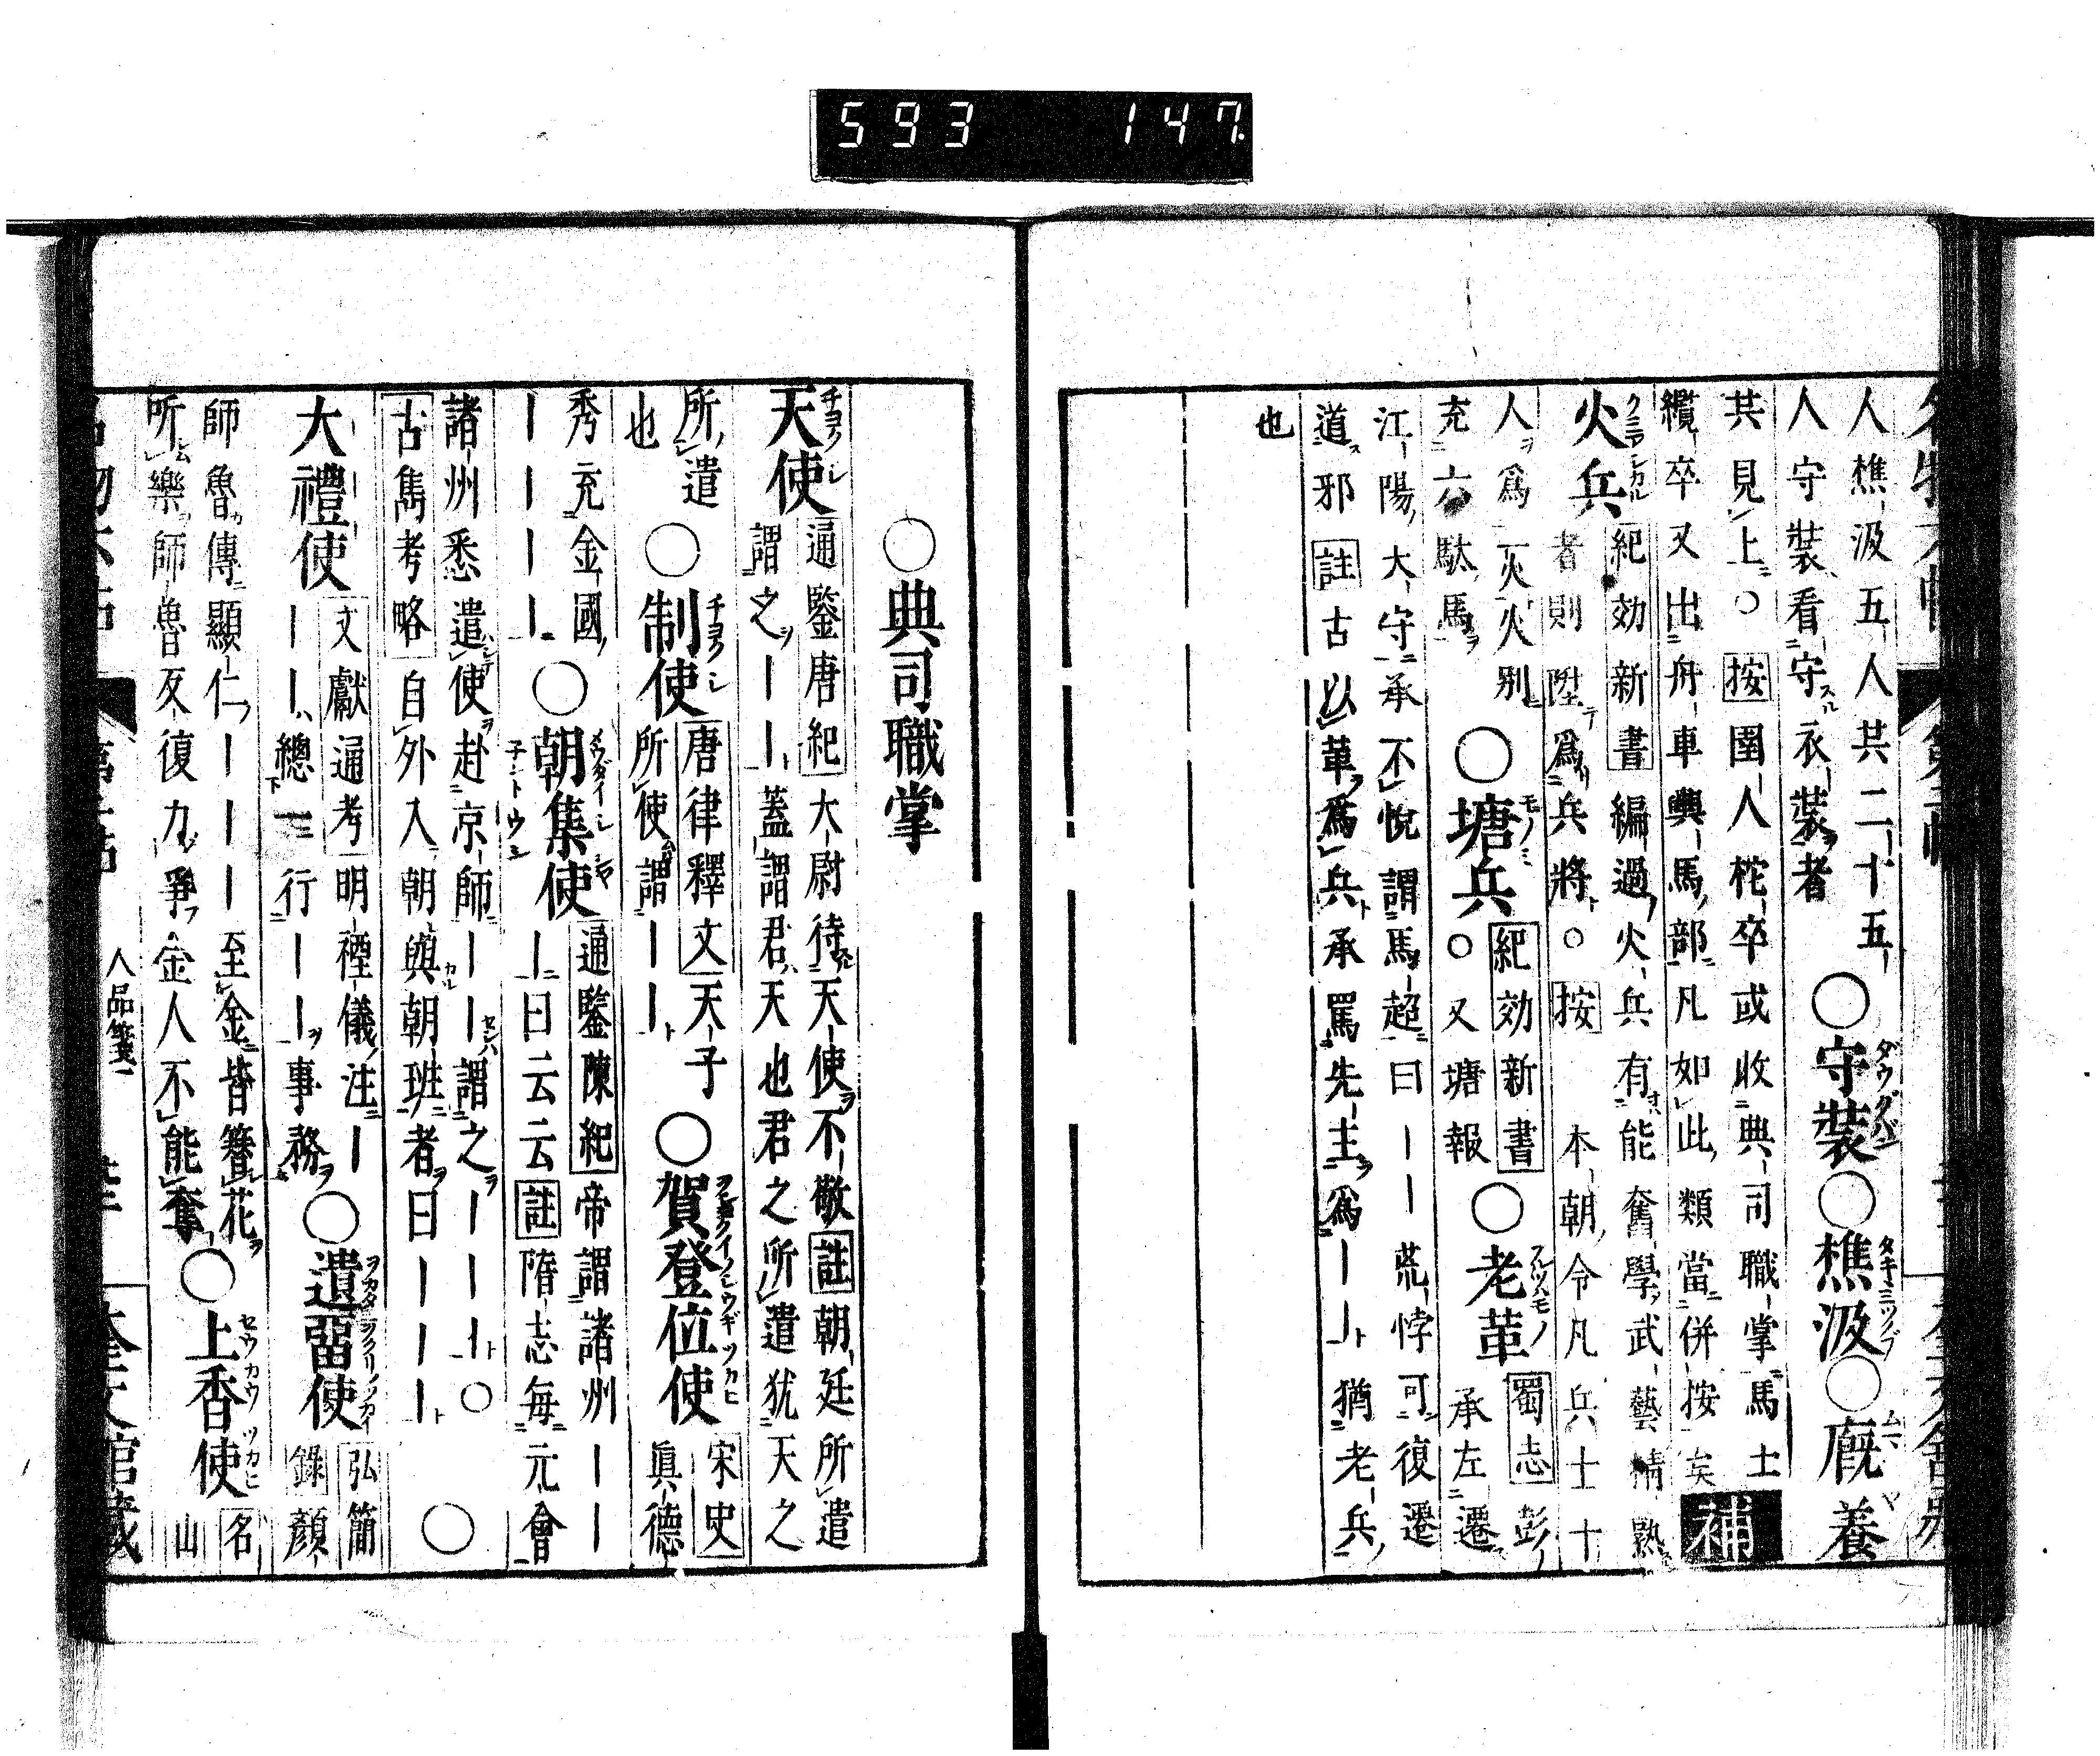 593 147
人樵汲五人共二十五
人守裝看守衣裝者 ○守裝○樵汲○廐養
共見上○按圉人柁卒或收典司職掌馬士
纜卒又出舟車輿馬部凡如此類當併按矣 補
火兵 紀効新書編過火兵有能奮學武藝精熟
者則陞爲兵將○按 本朝令凡兵士十
人爲一火火別
充六駄馬 ○塘兵 紀効新書
○又塘報 ○老革 蜀志彭
承左遷
江陽大守承不悅謂馬超曰ーー荒悖可復
道邪註古以革爲兵承罵先主爲ーー猶老兵
也
○典司職掌
天使 通鑒唐紀大尉待天使不敬註朝廷所遣
謂之ーー蓋謂君天也君之所遣犹天之
所遣
也 ○制使 唐律釋文天子
所使謂ーー ○賀登位使 宋史
眞德
秀充金國
ーーーー ○朝集使 通鑒陳紀帝謂諸州ーー
ー曰云云註隋志每元會
諸州悉遣使赴京師ーー謂之ーーー○
古雋考略自外入朝與朝班者曰ーーー ○
大禮使 文獻通考明禋儀注ー
ーーー總一行ーー事務 ○遺留使 弘簡
錄顏
師魯傳顯仁ーーー至金皆簪花
所樂師魯反復力爭金人不能奪 ○上香使 名
山
人品箋一